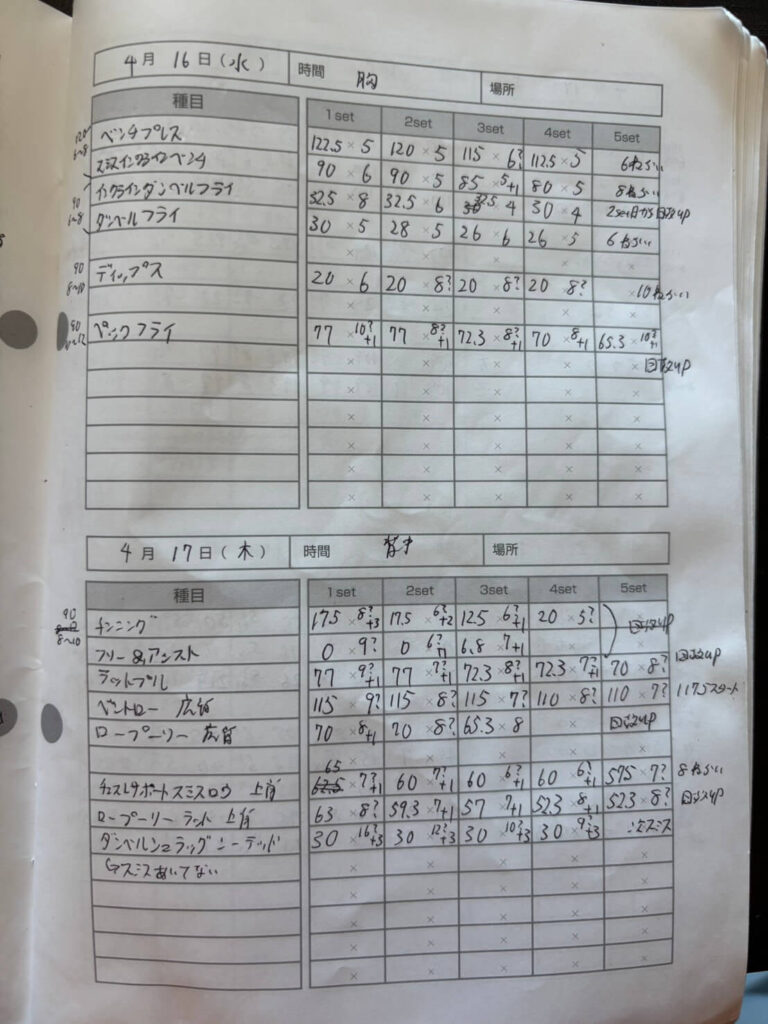 4月 16日(水) 時間 胸 場所
種目 1set 2set 3set 4set 5set
120 6~8 ベンチプレス 122.5×5 120×5 115×6? 112.5×5 6ねらい
スミスインクラインベンチ 90×6 90×5 85×5+1 80×5 8ねらい
90 6~8 インクラインダンベルフライ 32.5×8 32.5×6 32.5×4 30×4 2set目から回数up
ダンベルフライ 30×5 28×5 26×6 26×5 6ねらい
× × × × ×
90 8~10 ディップス 20×6 20×8? 20×8? 20×8? ×10ねらい
× × × × ×
90 ペックフライ 77×10?+1 77×8?+1 72.3×8?+1 70×8+1 65.3×10?+1
× × × × × 回数up
× × × × ×
× × × × ×
× × × × ×
× × × × ×
× × × × ×
4月 17日(木) 時間 背中 場所
種目 1set 2set 3set 4set 5set
90 8~10 チンニング 17.5×8?+3 17.5×6?+2 12.5×6?+1 20×5? 回数up
フリー&アシスト 0×9? 0×6?+1 6.8×7+1 × ×
ラットプル 77×9?+1 77×7?+1 72.3×8?+1 72.3×7?+1 70×8? 回数up
ベントロー 広背 115×9? 115×8? 115×7? 110×8? 110×7? 117.5スタート
ロープーリー 広背 70×8+1 70×8? 65.3×8 × 回数up
× × × × ×
チェストサポートスミスロウ 上背 65 62.5×7?+1 60×7?+1 60×6?+1 60×6?+1 57.5×7? 8ねらい
ロープーリー ラット 上背 63×8? 59.3×7+1 57×7+1 52.3×8+1 52.3×8? 回数up
ダンベルシュラッグ シーテッド 30×16?+3 30×12?+3 30×10?+3 30×9?+3
↳スミスあいてない × × × × ×
× × × × ×
× × × × ×
× × × × ×
× × × × ×